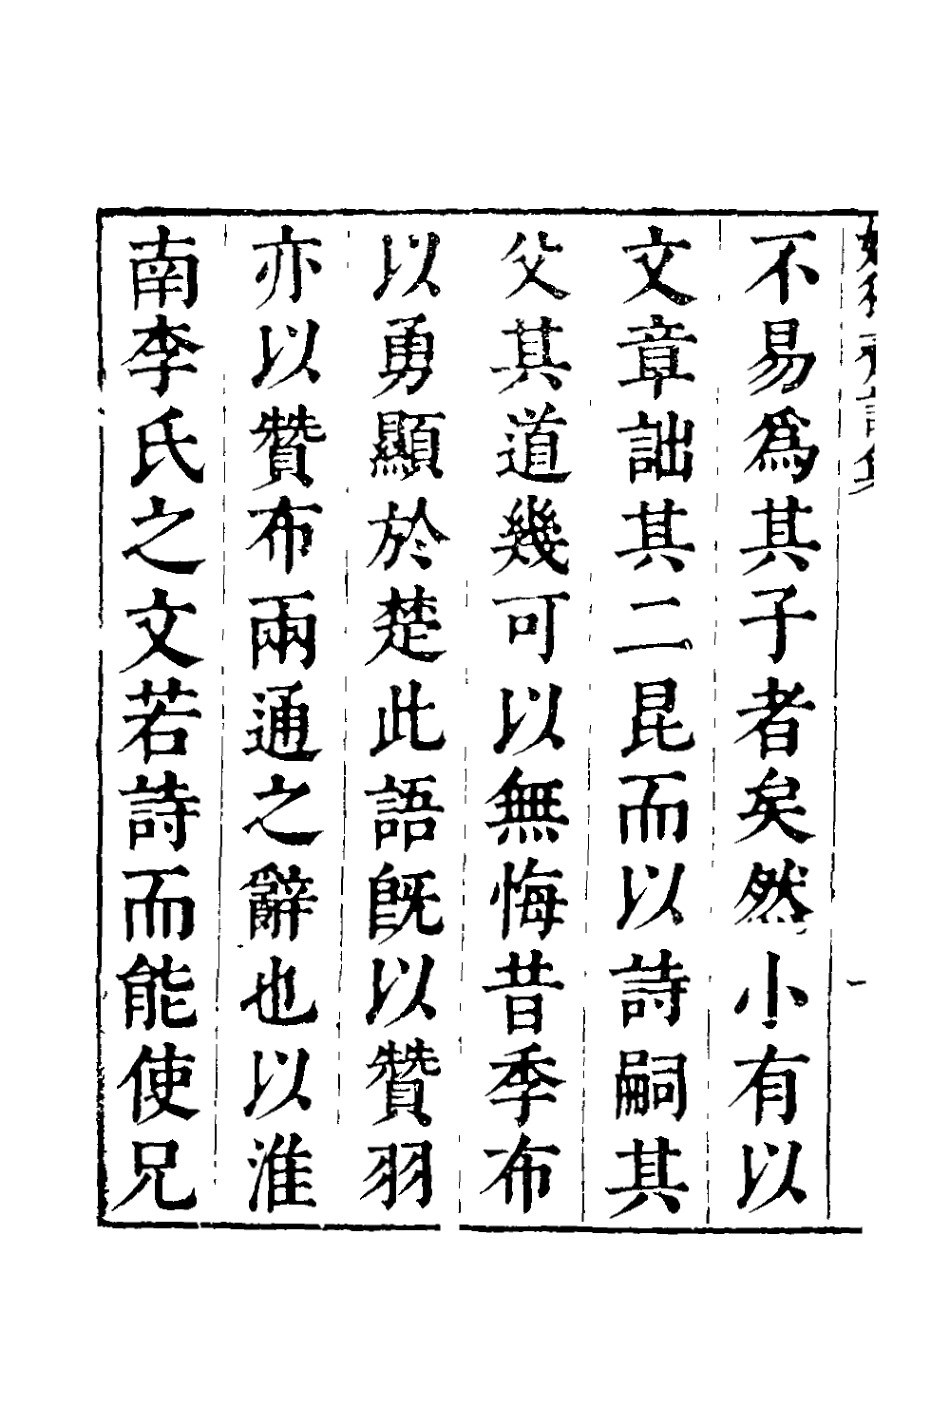 不易爲其子者矣然小有以
文章詘其二昆而以詩嗣其
父其道幾可以無悔昔季布
以勇顯於楚此語旣以贊羽
亦以贊布兩通之辭也以淮
南李氏之文若詩而能使兄